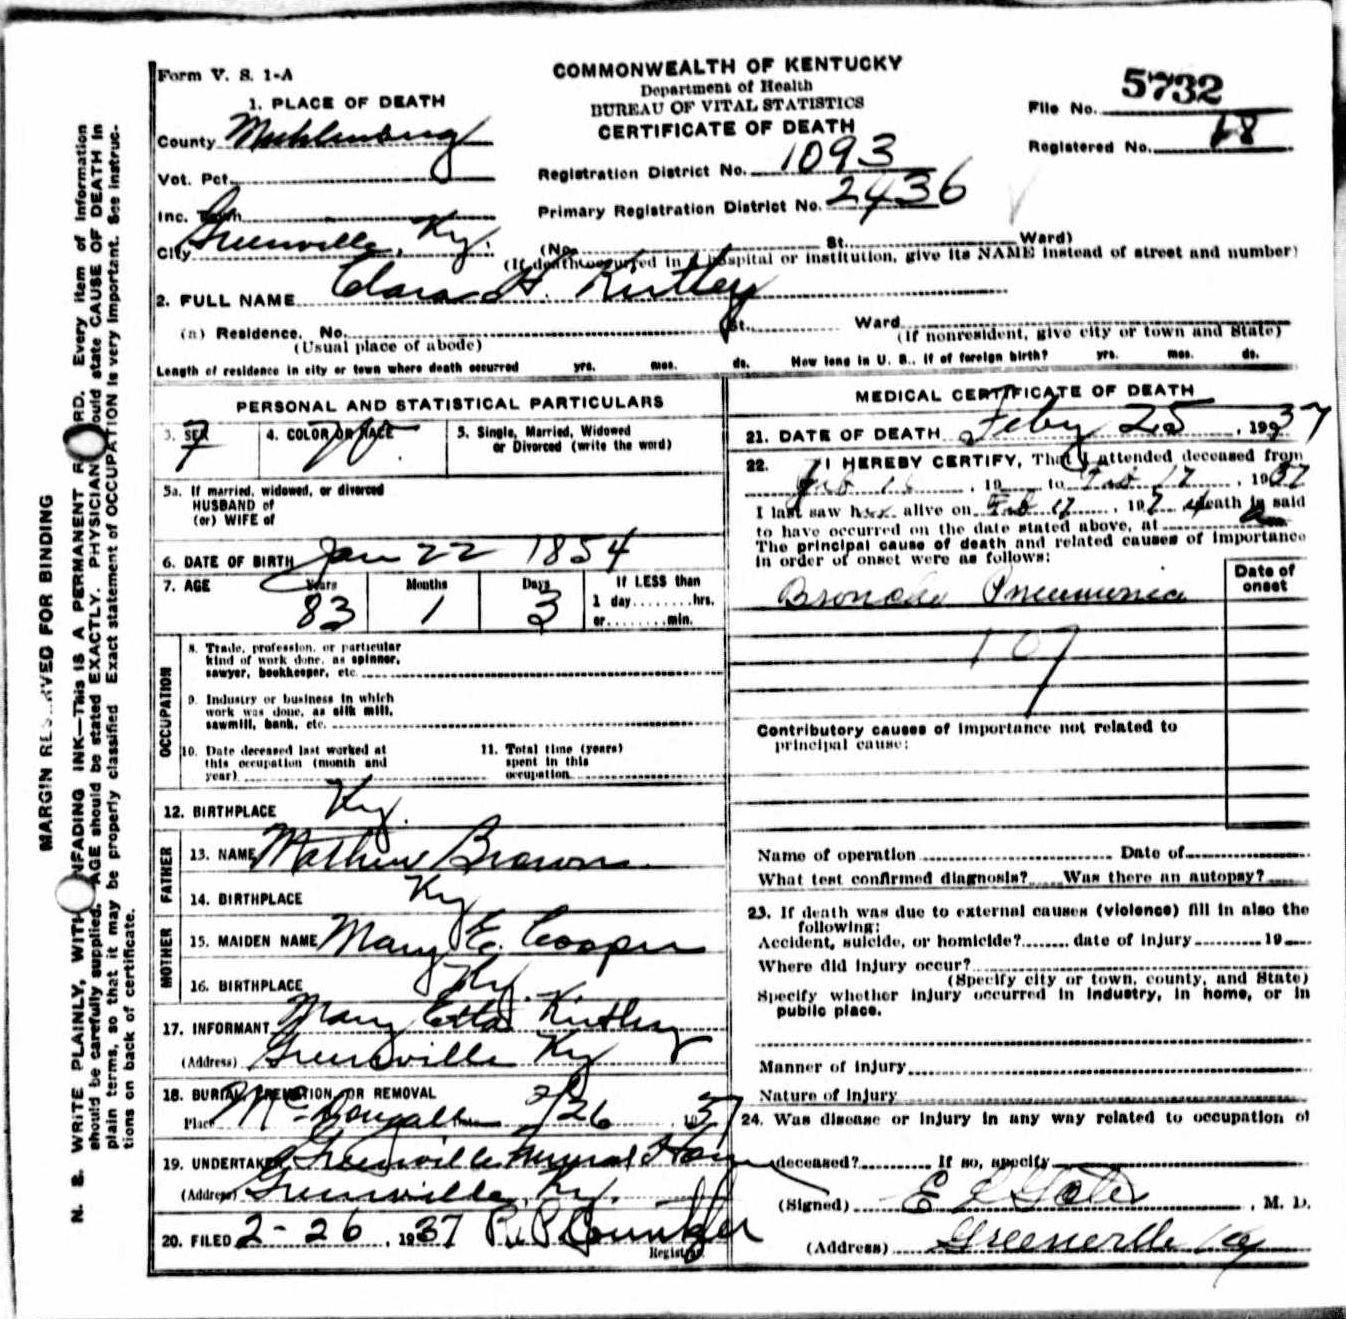 Form V. S. 1-A
COMMONWEALTH OF KENTUCKY
Department of Health
BUREAU OF VITAL STATISTICS
CERTIFICATE OF DEATH
File No. 5732
Registered No. 18
1. PLACE OF DEATH
County Muhlenburg
Vot. Pct.
Inc. Town
City Greenville, Ky.
Registration District No. 1093
Primary Registration District No. 2436
(No. St. Ward)
(If death occurred in a hospital or institution, give its NAME instead of street and number)
2. FULL NAME Clara H. Kirtley
(a) Residence. No. St. Ward
(Usual place of abode) (If nonresident, give city or town and State)
Length of residence in city or town where death occurred yrs. mos. ds. How long in U. S., if of foreign birth? yrs. mos. ds.
PERSONAL AND STATISTICAL PARTICULARS
3. SEX F
4. COLOR OR RACE W
5. Single, Married, Widowed
or Divorced (write the word)
5a. If married, widowed, or divorced
HUSBAND of
(or) WIFE of
6. DATE OF BIRTH Jan 22 1854
7. AGE Years Months Days If LESS than
83 1 3 1 day hrs.
or min.
OCCUPATION
8. Trade, profession, or particular
kind of work done, as spinner,
sawyer, bookkeeper, etc.
9. Industry or business in which
work was done, as silk mill,
sawmill, bank, etc.
10. Date deceased last worked at
this occupation (month and
year)
11. Total time (years)
spent in this
occupation
12. BIRTHPLACE Ky.
FATHER
13. NAME Mathew Brown
14. BIRTHPLACE Ky
MOTHER
15. MAIDEN NAME Mary E. Cooper
16. BIRTHPLACE Ky.
17. INFORMANT Mary Etta Kirtley
(Address) Greenville Ky
18. BURIAL, CREMATION OR REMOVAL
Place 2/26 1937
19. UNDERTAKER Greenville Funeral Home
(Address) Greenville, Ky.
20. FILED 2-26, 1937 R. P.
Registrar
MEDICAL CERTIFICATE OF DEATH
21. DATE OF DEATH Feby 25, 1937
22. I HEREBY CERTIFY, That I attended deceased from
Feb, 19 to Feb 17, 1937
I last saw her alive on Feb 17, 1937 death is said
to have occurred on the date stated above, at m
The principal cause of death and related causes of importance
in order of onset were as follows:
Date of
onset
Broncho Pneumonia
107
Contributory causes of importance not related to
principal cause:
Name of operation Date of
What test confirmed diagnosis? Was there an autopsy?
23. If death was due to external causes (violence) fill in also the
following:
Accident, suicide, or homicide? date of injury 19
Where did injury occur?
(Specify city or town, county, and State)
Specify whether injury occurred in industry, in home, or in
public place.
Manner of injury
Nature of injury
24. Was disease or injury in any way related to occupation of
deceased? If so, specify
(Signed) E L Gates, M. D.
(Address) Greenville Ky
MARGIN RESERVED FOR BINDING
N. B. WRITE PLAINLY, WITH UNFADING INK—THIS IS A PERMANENT RECORD. Every item of information
should be carefully supplied. AGE should be stated EXACTLY. PHYSICIANS should state CAUSE OF DEATH in
plain terms, so that it may be properly classified. Exact statement of OCCUPATION is very important. See instruc-
tions on back of certificate.